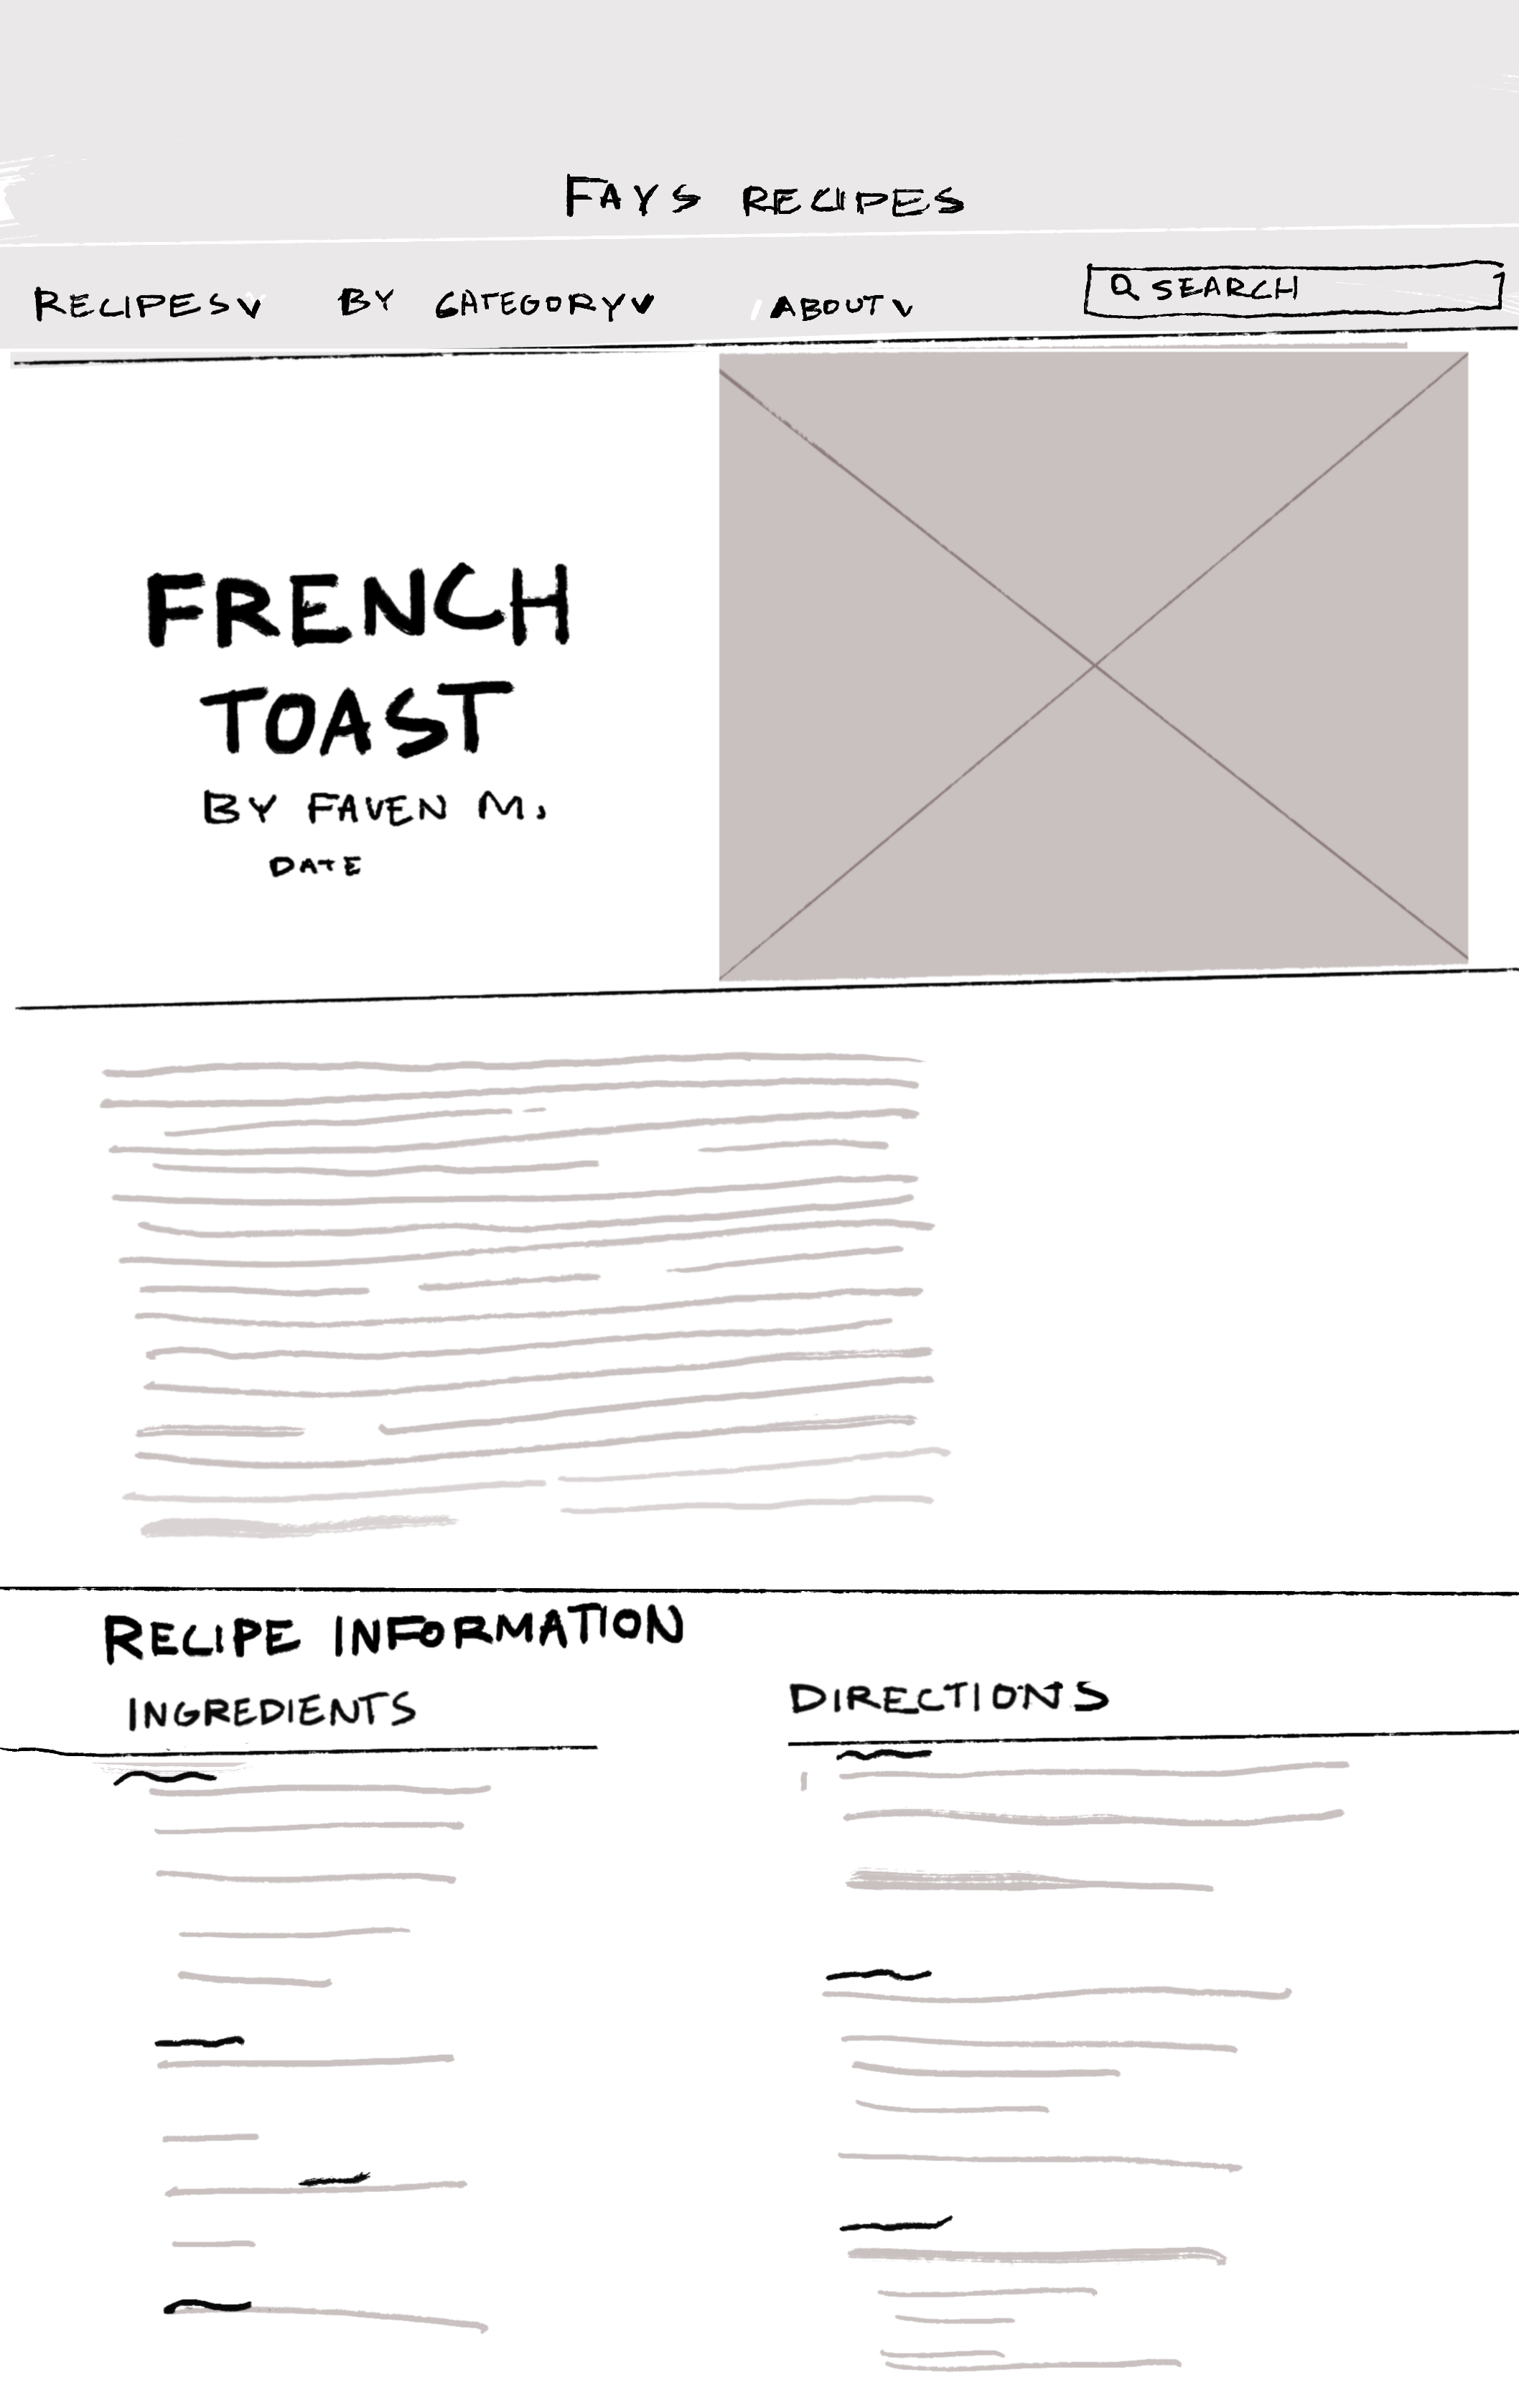 FAYS RECIPES
RECIPES BY CATEGORY ABOUT SEARCH
FRENCH
TOAST
BY FAVEN M.
DATE
RECIPE INFORMATION
INGREDIENTS
DIRECTIONS